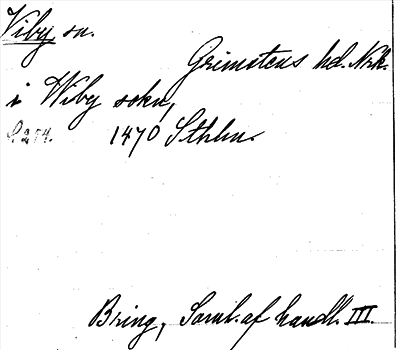 Viby sn.
Grimstens hd. Nrk.
i Wiby sokn,
S. 254. 1470 Sthlm.
Bring, Saml. af handl. III.